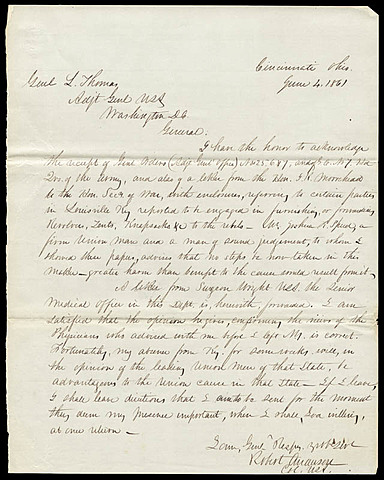 Cincinnati Ohio.
June 4. 1861
Genl L. Thomas
Adjt Genl USA
Washington DC
General:
I have the honor to acknowledge
the receipt of Genl Orders (Adjt Genl's Office) No 25 &
Drs. of the Army, and also of a letter from the Hon. J. K. Moorhead
to the Hon. Secy of War, with enclosures, referring to certain parties
in Louisville Ky reported to be engaged in furnishing, or promising
Revolvers, Tents, Knapsacks &c to the rebels — Mr. Joshua F. Speed, a
firm Union man and a man of sound judgement, to whom I
showed these papers, advises that no steps be now taken in this
matter — greater harm than benefit to the cause would result from it.
A letter from Surgeon Wright USA. the Senior
Medical Officer in this Dept. is, herewith, forwarded. I am
satisfied that the opinion he gives, confirming the views of the
Physicians who advised with me before I left Ky. is correct.
Fortunately, my absence from Ky. for some weeks, will, in
the opinion of the leading Union Men of that State, be
advantageous to the Union cause in that State — If I leave,
I shall leave directions that I am to be sent for the moment
they deem my presence important, when I shall, God willing,
at once return —
I am, Genl, Respy, Yr Obt Svt
Robert Anderson
Col. U.S.A.